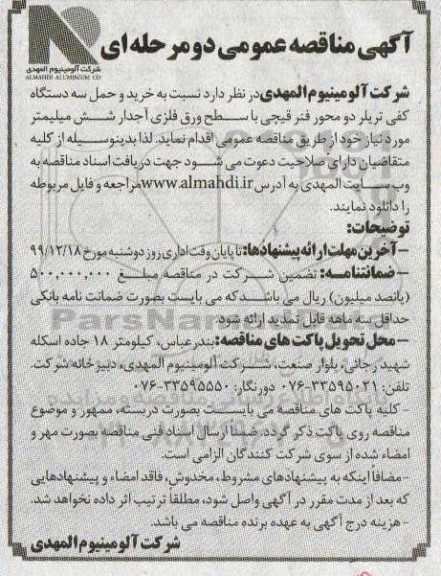 آگهی مناقصه عمومی دو مرحله ای
شرکت آلومینیوم المهدی
ALMAHDI ALUMINIUM CO
شرکت آلومینیوم المهدی در نظر دارد نسبت به خرید و حمل سه دستگاه
کفی تریلر دو محور فنر قیچی با سطح ورق فلزی آجدار شش میلیمتر
مورد نیاز خود از طریق مناقصه عمومی اقدام نماید. لذا بدینوسیله از کلیه
متقاضیان دارای صلاحیت دعوت می شود جهت دریافت اسناد مناقصه به
وب سایت المهدی به آدرس www.almahdi.ir مراجعه و فایل مربوطه
را دانلود نمایند.
توضیحات:
- آخرین مهلت ارائه پیشنهادها: تا پایان وقت اداری روز دوشنبه مورخ ۹۹/۱۲/۱۸
- ضمانتنامه: تضمین شرکت در مناقصه مبلغ ۵۰۰,۰۰۰,۰۰۰
(پانصد میلیون) ریال می باشد که می بایست بصورت ضمانت نامه بانکی
حداقل سه ماهه قابل تمدید ارائه شود.
- محل تحویل پاکت های مناقصه: بندرعباس، کیلومتر ۱۸ جاده اسکله
شهید رجائی، بلوار صنعت، شرکت آلومینیوم المهدی، دبیرخانه شرکت.
تلفن: ۳۳۵۹۵۰۲۱-۰۷۶ دورنگار: ۳۳۵۹۵۵۵۰-۰۷۶
- کلیه پاکت های مناقصه می بایست بصورت دربسته، ممهور و موضوع
مناقصه روی پاکت ذکر گردد ضمناً ارسال اسناد فنی مناقصه بصورت مهر و
امضاء شده از سوی شرکت کنندگان الزامی است.
- مضافاً اینکه به پیشنهادهای مشروط، مخدوش، فاقد امضاء و پیشنهادهایی
که بعد از مدت مقرر در آگهی واصل شود، مطلقاً ترتیب اثر داده نخواهد شد.
- هزینه درج آگهی به عهده برنده مناقصه می باشد.
شرکت آلومینیوم المهدی